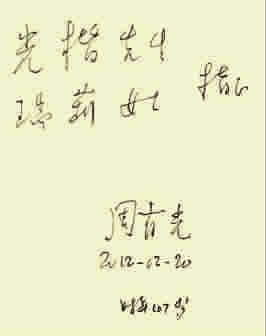 光楷先生
瑞莉女士 指正
周有光
2012-02-20
时年107岁